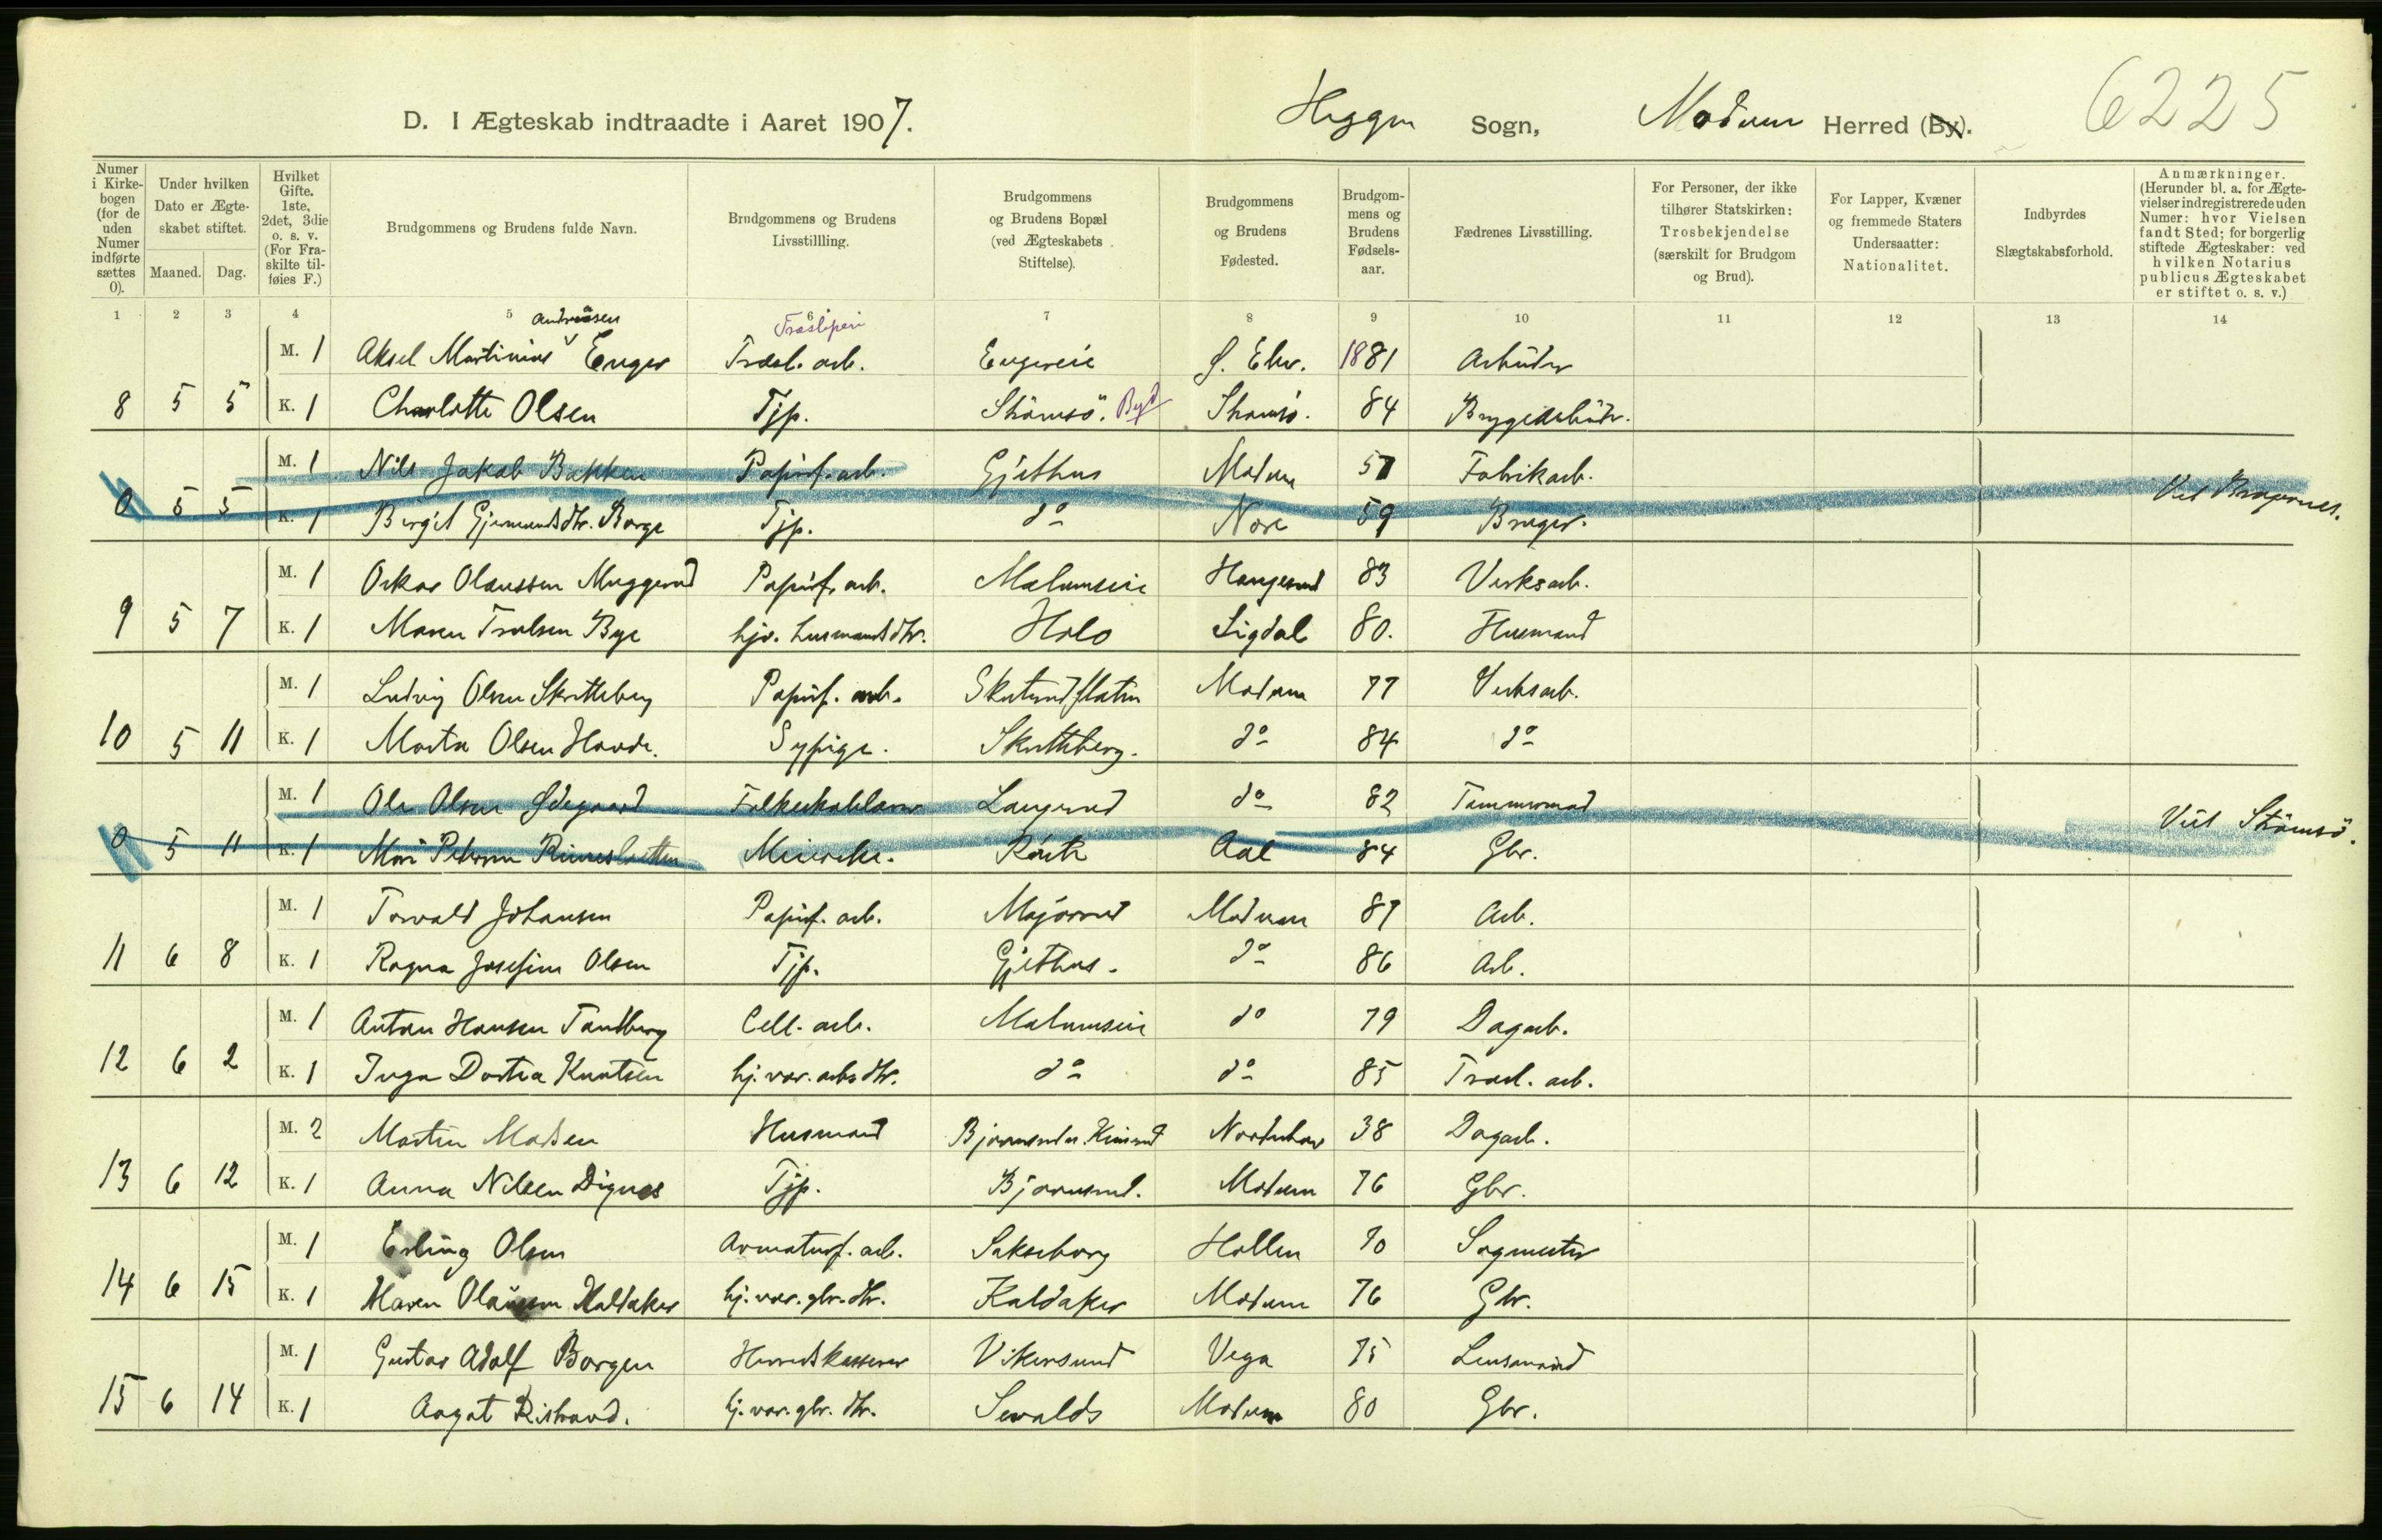 D. I Ægteskab indtraadte i Aaret 1907. Heggen Sogn, Modum Herred (By). 6225
Numer i Kirkebogen (for de uden Numer indførte sættes 0).
Under hvilken Dato er Ægteskabet stiftet.
Maaned. Dag.
Hvilket Gifte. 1ste, 2det, 3die o. s. v. (For Fraskilte tilføies F.)
Brudgommens og Brudens fulde Navn.
Brudgommens og Brudens Livsstillling.
Brudgommens og Brudens Bopæl (ved Ægteskabets Stiftelse).
Brudgommens og Brudens Fødested.
Brudgommens og Brudens Fødselsaar.
Fædrenes Livsstilling.
For Personer, der ikke tilhører Statskirken: Trosbekjendelse (særskilt for Brudgom og Brud).
For Lapper, Kvæner og fremmede Staters Undersaatter: Nationalitet.
Indbyrdes Slægtskabsforhold.
Anmærkninger. (Herunder bl. a. for Ægtevielser indregistrerede uden Numer: hvor Vielsen fandt Sted; for borgerlig stiftede Ægteskaber: ved hvilken Notarius publicus Ægteskabet er stiftet o. s. v.)
1 2 3 4 5 6 7 8 9 10 11 12 13 14
Andreasen Træsliperi
M. 1 Aksel Martinius Enger Træsl. arb. Engereie Ø. Eker. 1881 Arbeider
8 5 5 K. 1 Charlotte Olsen Tjp. Strömsö. By Strömsö. 84 Bryggearbeider.
M. 1 Nils Jakob Bakken Papirf. arb. Gjethus Modum 57 Fabrikarb.
0 5 5 K. 1 Birgit Gjermundsdtr. Borge Tjp. do Nore 59 Bruger. Viet Bragernes.
M. 1 Oskar Olaussen Muggerud Papirf. arb. Malumseie Haugesund 83 Verksarb.
9 5 7 K. 1 Maren Trulsen Bye hjv. husmandsdtr. Holo Sigdal 80. Husmand
M. 1 Ludvig Olsen Skretteberg Papirf. arb. Skuterudflaten Modum 77 Verksarb.
10 5 11 K. 1 Marta Olsen Hovde. Sypige. Skretteberg. do 84 do
M. 1 Ole Olsen Ødegaard Folkeskolelærer Langerud do 82 Tømmermand
0 5 11 K. 1 Mari Petersen Meierske. Aal 84 Gbr. Viet Strömsö.
M. 1 Torvald Johansen Papirf. arb. Majorrud Modum 87 Arb.
11 6 8 K. 1 Ragna Josefine Olsen Tjp. Gjethus. do 86 Arb.
M. 1 Anton Hansen Tandberg Cell. arb. Malumseie do 79 Dagarb.
12 6 2 K. 1 Inga Dortea Knutsen hj. vær. arbs dtr. do do 85 Træsl. arb.
M. 2 Martin Madsen Husmand Norderhov 38 Dagarb.
13 6 12 K. 1 Anna Nilsen Dignes Tjp. Bjørnerud. Modum 76 Gbr.
M. 1 Erling Olsen Armaturf. arb. Sakseborg Hollen 70 Sagmester
14 6 15 K. 1 Maren Olausen Kaldaker hj. vær. gbr. dtr. Kaldaker Modum 76 Gbr.
M. 1 Gustav Adolf Borgen Herredskasserer Vikersund Vega 75 Lensmand
15 6 14 K. 1 Aagot Ristvand. hj. vær. gbr. dtr. Sevalds Modum 80 Gbr.